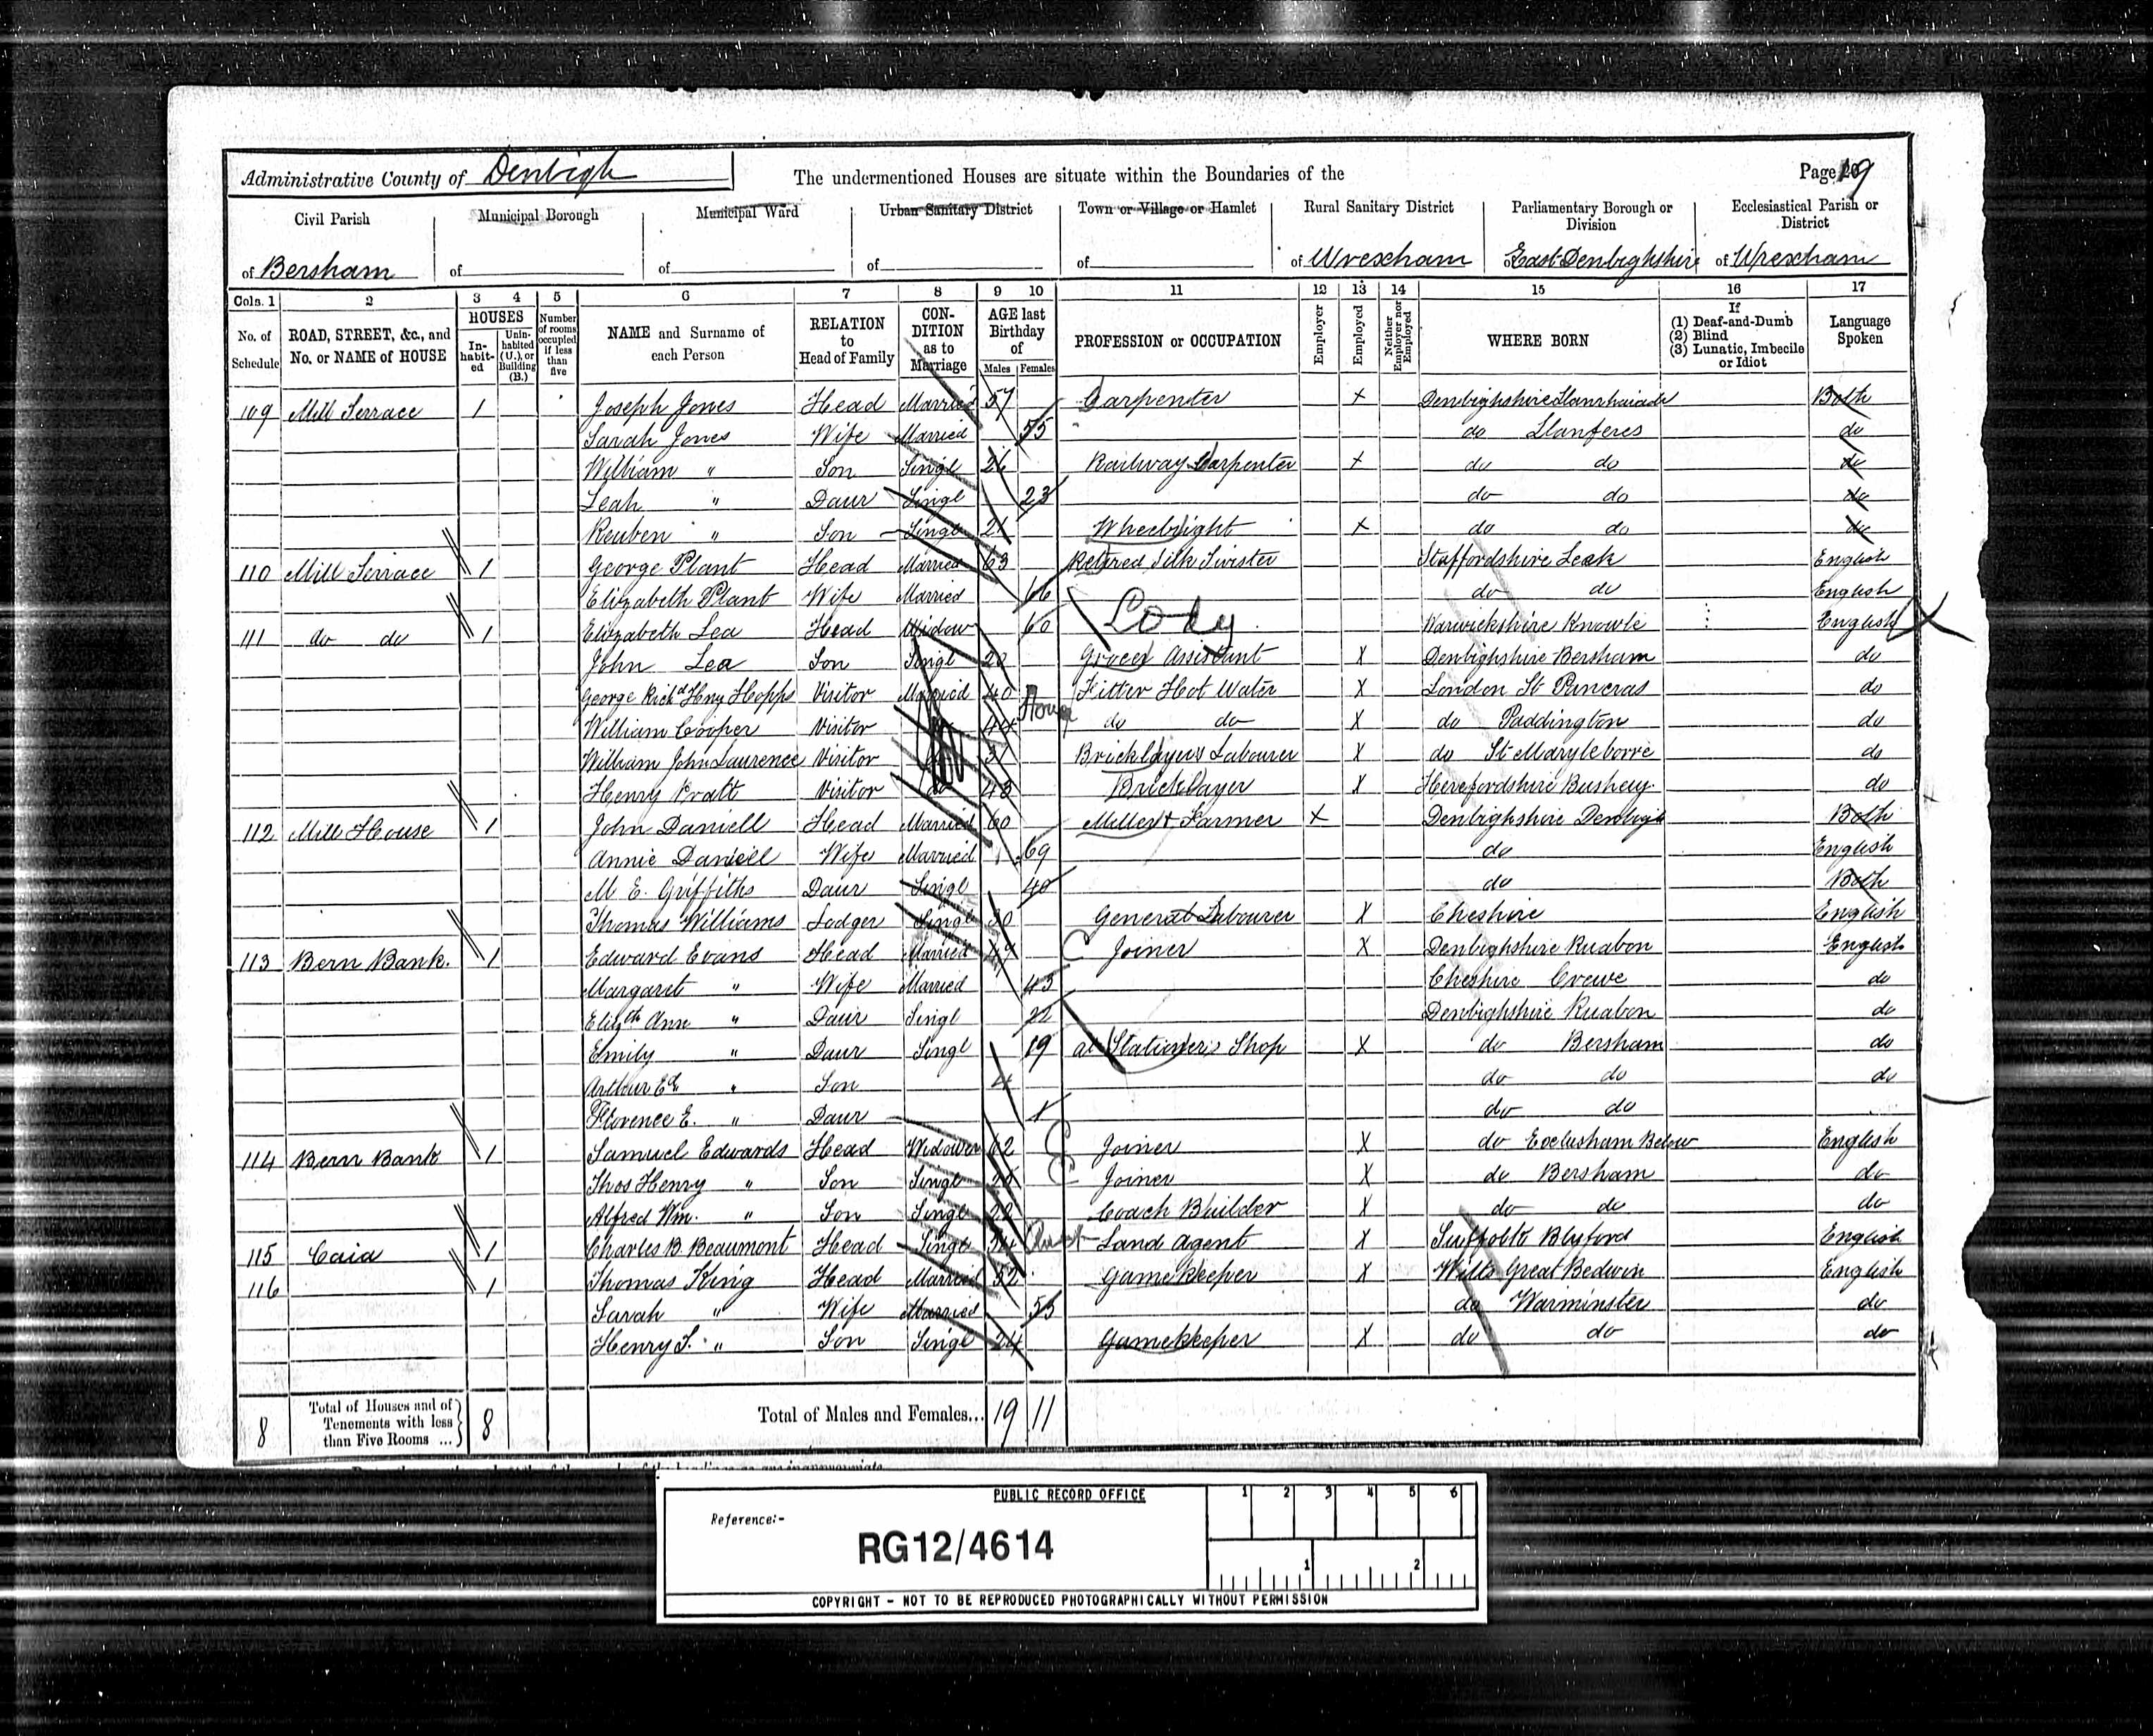 Administrative County of Denbigh
The undermentioned Houses are situate within the Boundaries of the
Page 19
Civil Parish
Municipal Borough
Municipal Ward
Urban Sanitary District
Town or Village or Hamlet
Rural Sanitary District
Parliamentary Borough or Division
Ecclesiastical Parish or District
of Bersham
of
of
of
of
of Wrexham
of East Denbighshire
of Wrexham
Cols. 1 2 3 4 5 6 7 8 9 10 11 12 13 14 15 16 17
No. of Schedule
ROAD, STREET, &c., and No. or NAME of HOUSE
HOUSES
In-habit-ed
Unin-habited (U.), or Building (B.)
Number of rooms occupied if less than five
NAME and Surname of each Person
RELATION to Head of Family
CON-DITION as to Marriage
AGE last Birthday of
Males Females
PROFESSION or OCCUPATION
Employer
Employed
Neither Employer nor Employed
WHERE BORN
If
(1) Deaf-and-Dumb
(2) Blind
(3) Lunatic, Imbecile or Idiot
Language Spoken
109 Mill Terrace 1 Joseph Jones Head Married 57 Carpenter X Denbighshire Both
Sarah Jones Wife Married 55 do Llanferes do
William " Son Singl 26 Railway Carpenter X do do do
Leah " Daur Singl 23 do do do
Reuben " Son Singl 21 Wheelright X do do do
110 Mill Terrace 1 George Plant Head Married 63 Retired Silk Twister Staffordshire Leek English
Elizabeth Plant Wife Married 66 do do English
111 do do 1 Elizabeth Lea Head Widow 60 Warwickshire Knowle English
John Lea Son Singl 20 Grocer Assistant X Denbighshire Bersham do
George Richd Hny Hopps Visitor Married 40 Fitter Hot Water X London St Pancras do
William Cooper Visitor do 44 do do X do Paddington do
William John Laurence Visitor do 31 Bricklayers Labourer X do St Marylebone do
Henry Pratt Visitor do 43 Bricklayer X Herefordshire Bushey do
112 Mill House 1 John Daniell Head Married 60 Miller & Farmer X Denbighshire Denbigh Both
Annie Daniell Wife Married 69 do English
M E. Griffiths Daur Singl 40 do Both
Thomas Williams Lodger Singl 30 General Labourer X Cheshire English
113 Bern Bank. 1 Edward Evans Head Married Joiner X Denbighshire Ruabon English
Margaret " Wife Married 45 Cheshire Crewe do
Elizth Ann " Daur Singl 21 Denbighshire Ruabon do
Emily " Daur Singl 19 at Stationers Shop X do Bersham do
Arthur Ed " Son 4 do do do
Florence E. " Daur 1 do do
114 Bern Bank 1 Samuel Edwards Head Widower 62 Joiner X do Esclusham Below English
Thos Henry " Son Singl 26 Joiner X do Bersham do
Alfred Wm. " Son Singl 22 Coach Builder X do do do
115 Caia 1 Charles B. Beaumont Head Singl 34 Land Agent X Suffolk Blyford English
116 1 Thomas King Head Married 52 Game Keeper X Wilts Great Bedwin English
Sarah " Wife Married 55 do Warminster do
Henry T. " Son Singl 24 Gamekeeper X do do do
8 Total of Houses and of Tenements with less than Five Rooms ... 8 Total of Males and Females... 19 11
PUBLIC RECORD OFFICE
Reference:-
RG12/4614
1 2 3 4 5 6
1 2
COPYRIGHT - NOT TO BE REPRODUCED PHOTOGRAPHICALLY WITHOUT PERMISSION